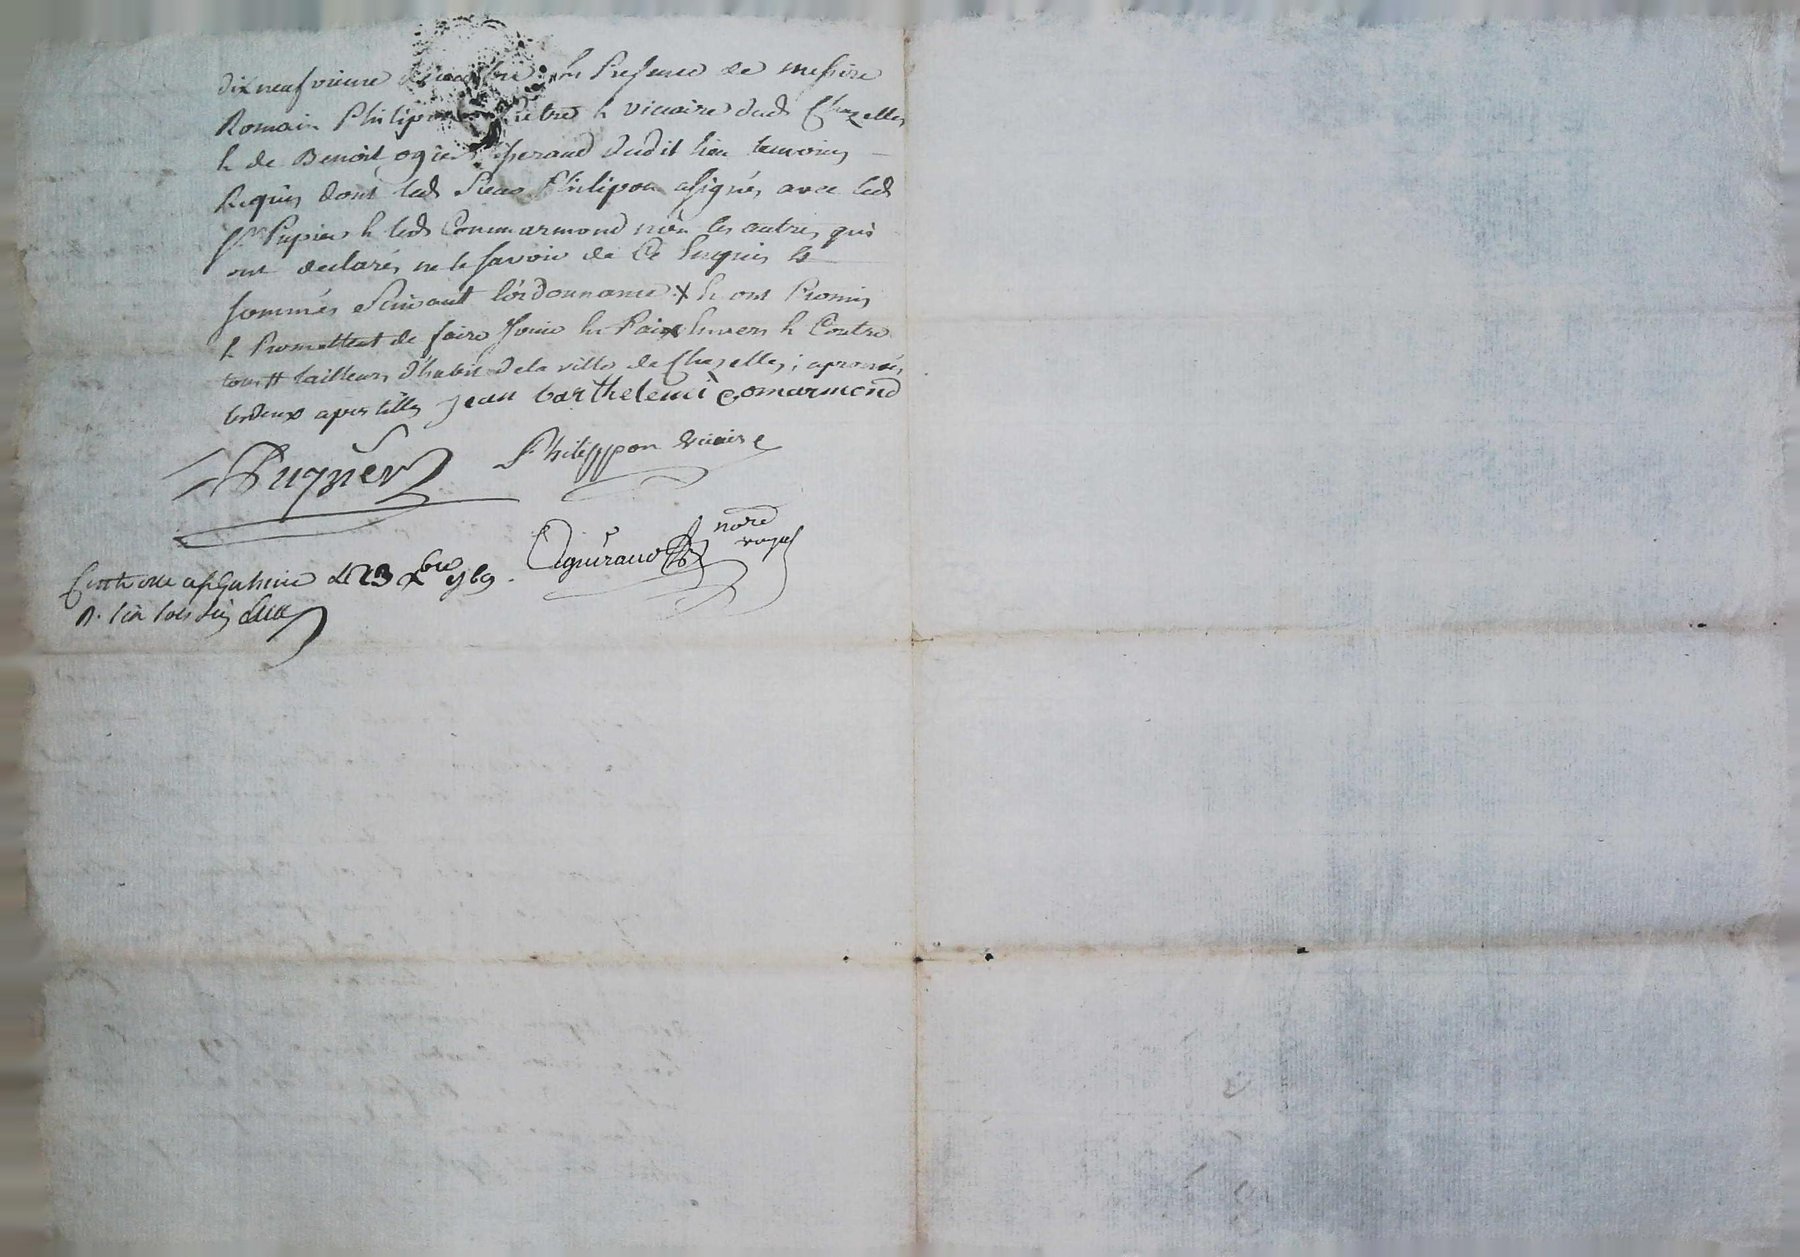 dix neufvieme decembre en presence de messire
Romain Philipon pretre & vicaire dud Chazelles
& de Benoit ogier dudit lieu temoins
Requis dont led Sieur Philipon asigné, avec led
Sr Pupier & led Commarmond non les autres qui
ont declarés ne le savoir de Ce Enquis &
sommés Suivant l'ordonnance X & ont Promis
& Promettent de faire Jouir Envers & Contre
tous # tailleurs d'habit de la ville de Chazelles; aprouvés
les deux apostilles jean barthelemi comarmond
Philippon vicaire
Pugnier
nore
royal
Aguiraud
le 23 Xbre 1769.